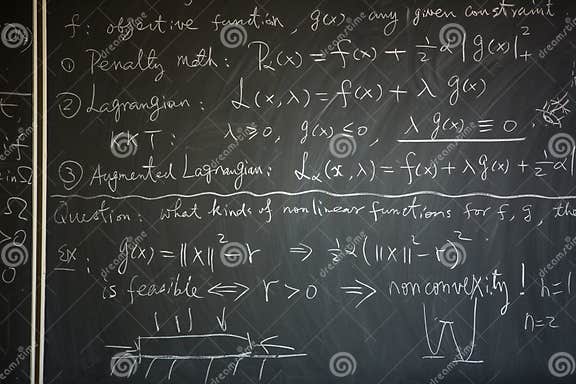 f: objective function, g(x) any given constraint
① Penalty meth: P_α(x) = f(x) + ½ α |g(x)|²₊
② Lagrangian: L(x, λ) = f(x) + λ g(x)
KKT: λ ≥ 0, g(x) ≤ 0, λ g(x) ≡ 0.
③ Augmented Lagrangian: L_α(x, λ) = f(x) + λ g(x) + ½ α|
Question: what kinds of nonlinear functions for f, g, the
Ex: g(x) = ||x||² - r ⇒ ½ α (||x||² - r)².
is feasible ⇔ r > 0 ⇒ nonconvexity! n=1
n=2